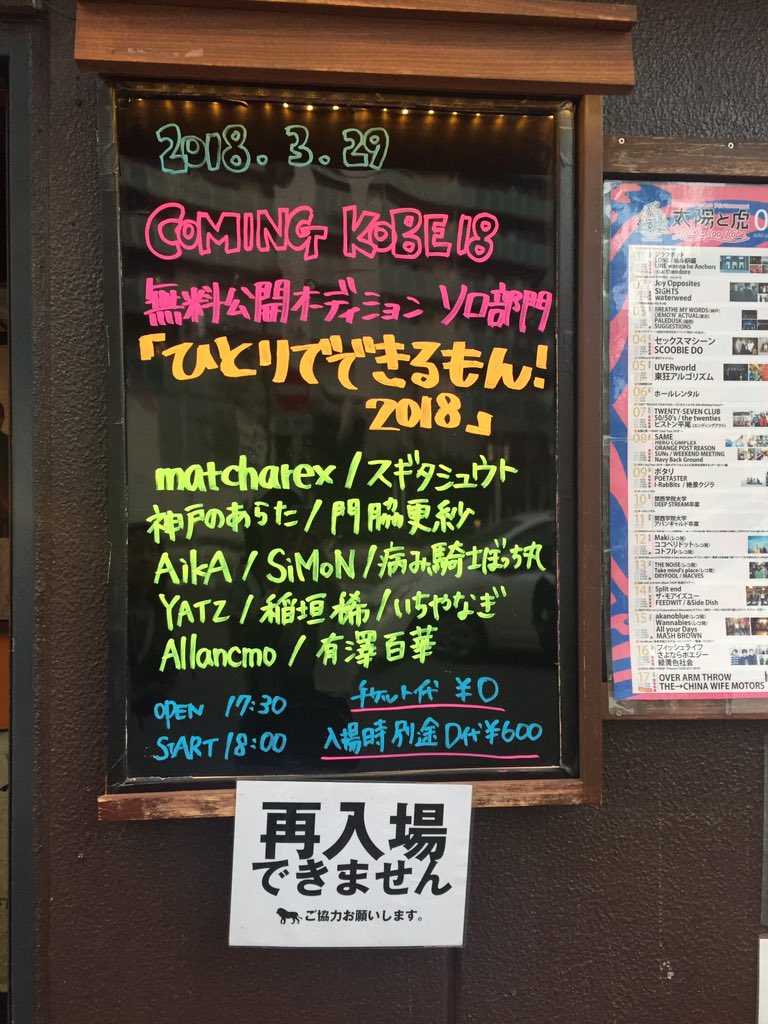 2018.3.29
COMING KOBE 18
無料公開オーディション ソロ部門
「ひとりでできるもん!
2018」
matcharex / スギタシュウト
神戸のあらた / 門脇更紗
AikA / SiMoN / 病み騎士ぼっち丸
YATZ / 稲垣稀 / いちやなぎ
Allancmo / 有澤百華
OPEN 17:30
START 18:00
チケット代 ¥0
入場時別途D代¥600
再入場
できません
ご協力お願いします。
太陽と虎
LINE wanna be Anchors
Joy Opposites
SIGHTS
waterweed
BREATHE MY WORDS
PALEDUSK
SUGGESTIONS
04
セックスマシーン
SCOOBIE DO
05
UVERworld
東狂アルゴリズム
06
ホールレンタル
07
TWENTY-SEVEN CLUB
50/50's / the twenties
ピストン平尾
08
SAME
ORANGE POST REASON
SUNs / WEEKEND MEETING
Navy Back Ground
09
ボタリ
POETASTER
I-RabBits / 絶景クジラ
10
関西学院大学
DEEP STREAM卒業
11
関西学院大学
アバンギャルド卒業
12
Maki
ココペリドット
コトフル
13
THE NOISE
Take mind's place
DRYFOOL / MACVES
14
Split end
ザ・モアイズユー
FEEDWIT / &Side Dish
15
akanoblue
Wannabies
All your Days
MASH BROWN
16
フィッシュライフ
さよならポエジー
緑黄色社会
17
OVER ARM THROW
THE→CHINA WIFE MOTORS